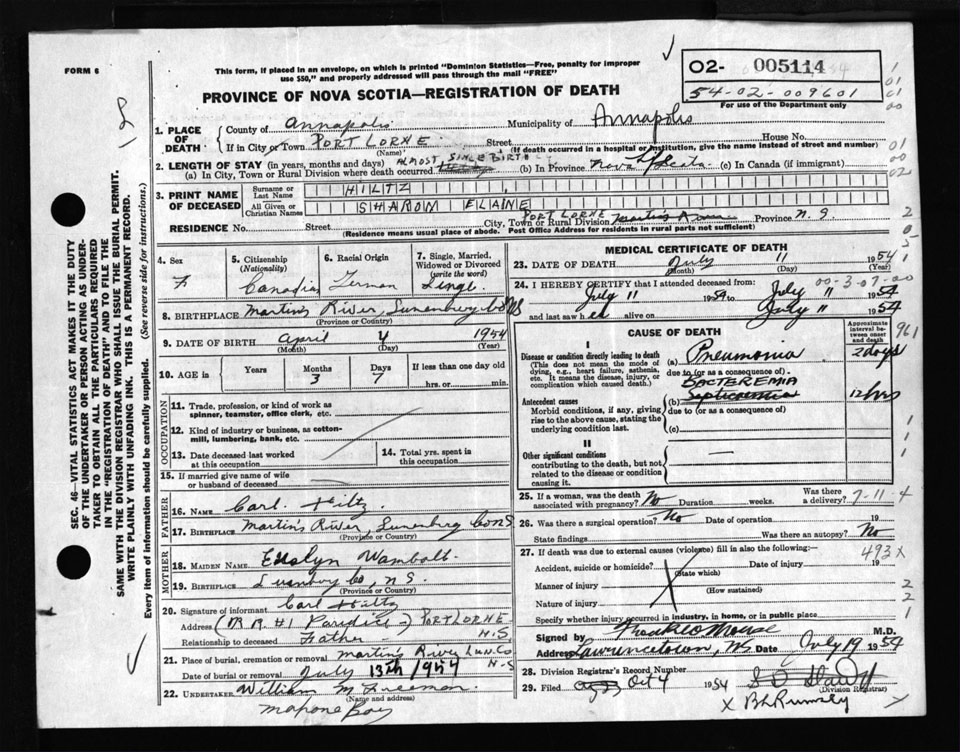 FORM 6
This form, if placed in an envelope, on which is printed "Dominion Statistics—Free, penalty for improper
use $50," and properly addressed will pass through the mail "FREE"
PROVINCE OF NOVA SCOTIA—REGISTRATION OF DEATH
02- 005114
54-02-009601
For use of the Department only
1. PLACE OF DEATH
County of Annapolis Municipality of Annapolis
If in City or Town PORT LORNE Street House No.
(Name) (If death occurred in a hospital or institution, give the name instead of street and number)
2. LENGTH OF STAY (in years, months and days) ALMOST SINCE BIRTH
(a) In City, Town or Rural Division where death occurred (b) In Province Nova Scotia (c) In Canada (if immigrant)
3. PRINT NAME OF DECEASED
Surname or Last Name HILTZ
All Given or Christian Names SHARON ELAINE
RESIDENCE No. Street City, Town or Rural Division PORT LORNE Martins River Province N.S
(Residence means usual place of abode. Post Office Address for residents in rural parts not sufficient)
4. Sex F
5. Citizenship (Nationality) Canadian
6. Racial Origin German
7. Single, Married, Widowed or Divorced (write the word) Single
8. BIRTHPLACE Martins River, Lunenburg Co NS
(Province or Country)
9. DATE OF BIRTH April 4 1954
(Month) (Day) (Year)
10. AGE in Years Months 3 Days 7 If less than one day old hrs. or min.
OCCUPATION
11. Trade, profession, or kind of work as spinner, teamster, office clerk, etc.
12. Kind of industry or business, as cotton-mill, lumbering, bank, etc.
13. Date deceased last worked at this occupation
14. Total yrs. spent in this occupation
15. If married give name of wife or husband of deceased
FATHER
16. NAME Carl Hiltz
17. BIRTHPLACE Martin's River, Lunenburg Co NS
(Province or Country)
MOTHER
18. MAIDEN NAME Wambolt
19. BIRTHPLACE Co, N S.
(Province or Country)
20. Signature of informant Carl Hiltz
Address (R R #1 Paradise) PORT LORNE N.S
Relationship to deceased Father
21. Place of burial, cremation or removal Martins River Lun. Co N-S
Date of burial or removal July 13th 1954
22. UNDERTAKER William M Freeman
(Name and address)
Mahone Bay
MEDICAL CERTIFICATE OF DEATH
23. DATE OF DEATH July 11 1954
(Month) (Day) (Year)
24. I HEREBY CERTIFY that I attended deceased from: 00-3-07-00
July 11 1954 to July " 1954
and last saw h er alive on July " 1954
CAUSE OF DEATH
Approximate interval between onset and death
961
I
Disease or condition directly leading to death
(This does not mean the mode of dying, e.g., heart failure, asthenia, etc. It means the disease, injury, or complication which caused death.)
(a) Pneumonia 2 days
due to (or as a consequence of)
BACTEREMIA
Antecedent causes
Morbid conditions, if any, giving rise to the above cause, stating the underlying condition last.
(b) Septicaemia 12 hrs
due to (or as a consequence of)
(c)
II
Other significant conditions
contributing to the death, but not related to the disease or condition causing it.
25. If a woman, was the death associated with pregnancy? No Duration weeks. Was there a delivery? 7-11 4
26. Was there a surgical operation? No Date of operation 19
State findings Was there an autopsy? No
27. If death was due to external causes (violence) fill in also the following:— 493 X
Accident, suicide or homicide? Date of injury 19
(State which)
Manner of injury
(How sustained)
Nature of injury
Specify whether injury occurred in industry, in home, or in public place
Signed by M.D.
Address Lawrencetown, NS. Date July 19 1954
28. Division Registrar's Record Number
29. Filed Oct 4 1954
(Division Registrar)
X B L Rumsey
SEC. 46—VITAL STATISTICS ACT MAKES IT THE DUTY
OF THE UNDERTAKER OR PERSON ACTING AS UNDER-
TAKER TO OBTAIN ALL THE PARTICULARS REQUIRED
IN THE "REGISTRATION OF DEATH" AND TO FILE THE
SAME WITH THE DIVISION REGISTRAR WHO SHALL ISSUE THE BURIAL PERMIT.
WRITE PLAINLY WITH UNFADING INK. THIS IS A PERMANENT RECORD.
Every item of information should be carefully supplied. (See reverse side for instructions.)